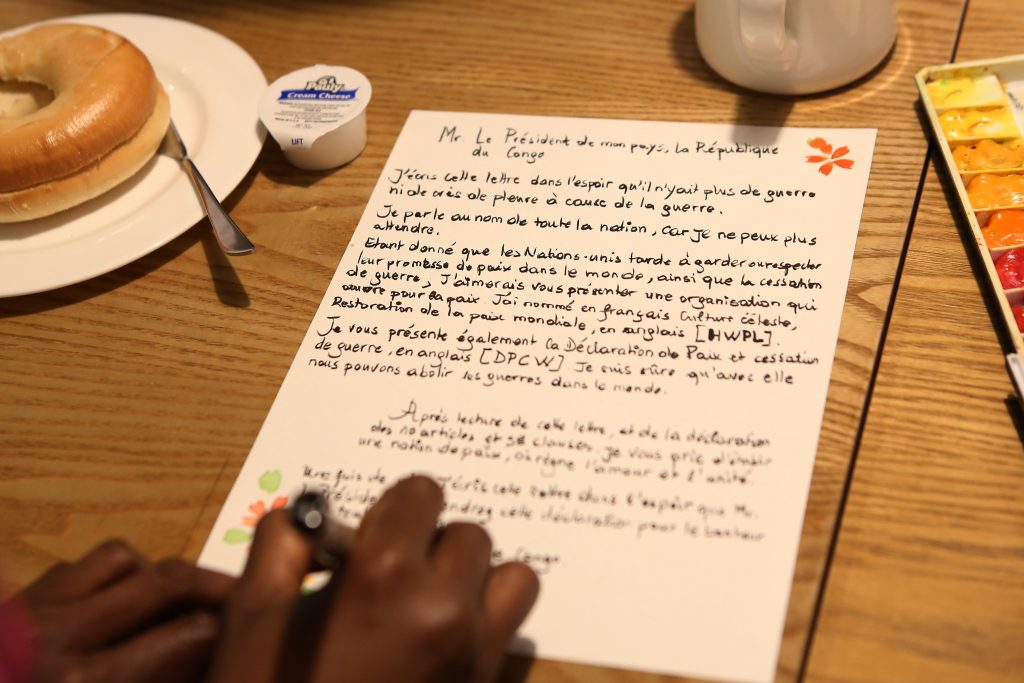 Pauly
Cream Cheese
LIFT
Mr. Le Président de mon pays, la République
du Congo
J'écris cette lettre dans l'espoir qu'il n'yait plus de guerre
ni de cris de pleure à cause de la guerre.
Je parle au nom de toute la nation, car je ne peux plus
attendre.
Etant donné que les Nations-unis tarde à garder ou respecter
leur promesse de paix dans le monde, ainsi que la cessation
de guerre, J'aimerais vous présenter une organisation qui
œuvre pour la paix. J'ai nommé en français Culture Céleste,
Restoration de la paix mondiale, en anglais [HWPL].
Je vous présente également la Déclaration de Paix et cessation
de guerre, en anglais [DPCW] Je suis sûre qu'avec elle
nous pouvons abolir les guerres dans le monde.
Après lecture de cette lettre, et de la déclaration
des 10 articles et 38 clauses. Je vous prie d'établir
une nation de paix, où règne l'amour et l'unité.
fois de J'écris cette lettre dans l'espoir que Mr.
Préside cette déclaration pour le bonheur
Congo.